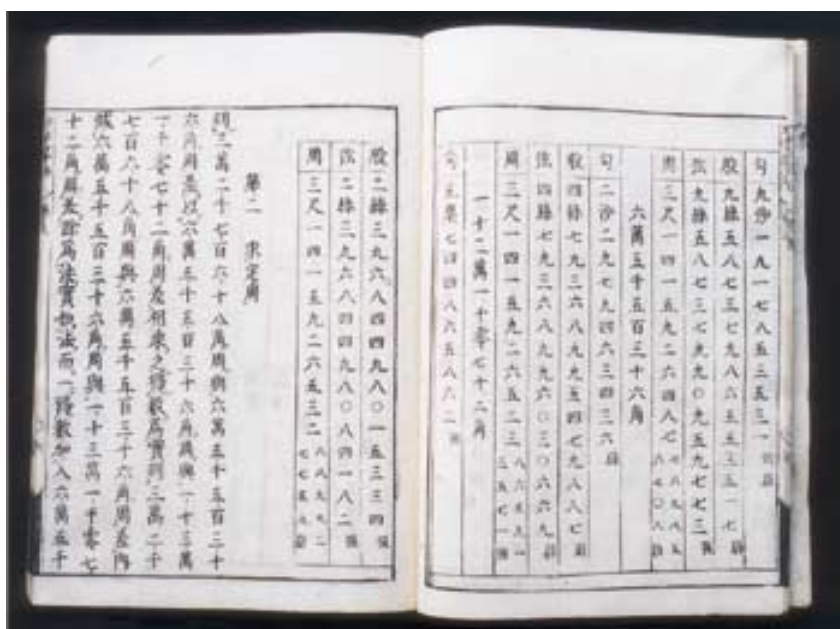 句九沙一九一七八五三五三一微弱
股九絲五八七三七九八六五五三五一七弱
弦九絲五八七三七九九〇九五九七七三強
周三尺一四一五九二六四八七七六九八五六七〇八弱
六萬五千五百三十六角
句二沙二九七九四六三四三六弱
股四絲七九三六八九九五四七九八八七弱
弦四絲七九三六八九九六〇三〇六六九弱
周三尺一四一五九二六五二三八六五九一三五七一強
一十三萬一千零七十二角
句五七四四八六五八六二強
股二絲三九六八四四九八〇一五三三四強
弦二絲三九六八四四九八〇八四一八二強
周三尺一四一五九二六五三二八八九九二七七五九弱
第二 求定周
列三萬二千七百六十八角周與六萬五千五百三十
六角周差以六萬五千五百三十六角周與一十三萬
一千零七十二角周差相乘之得數爲實列三萬二千
七百六十八角周與六萬五千五百三十六角周差内
減六萬五千五百三十六角周與一十三萬一千零七
十二角周差餘爲法實如法而一得數加入六萬五千